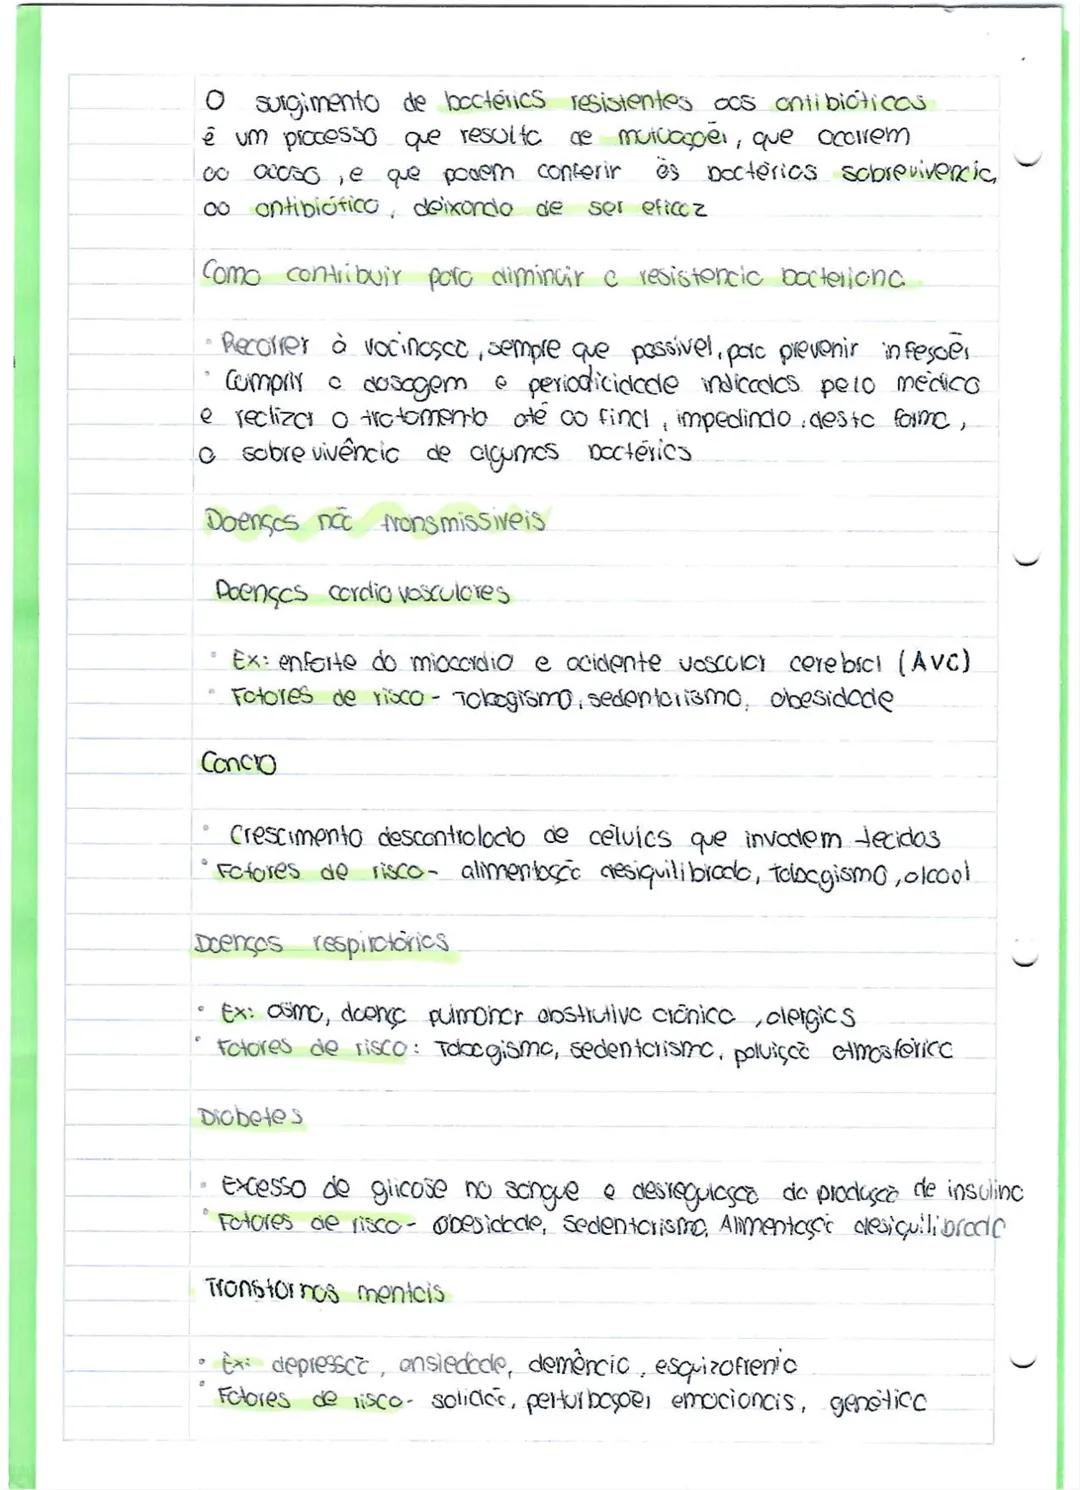 O surgimento de bactérias resistentes aos antibióticos
é um processo que resulta de mutações, que ocorrem
ao acaso, e que podem conferir às bactérias sobrevivencia,
ao antibiótico, deixando de ser eficaz
Como contribuir para diminuir a resistencia bacteriana
• Recorrer à vacinação, sempre que possivel, para prevenir infeções
• Cumprir a dosagem e periodicidade indicadas pelo médico
e realizar o tratamento até ao final, impedindo, desta forma,
a sobrevivência de algumas bactérias
Doenças não transmissiveis
Doenças cardiovasculares
• Ex: enfarte do miocardio e acidente vascular cerebral (AVC)
• Fatores de risco - Tabagismo, sedentarismo, obesidade
Cancro
• Crescimento descontrolado de células que invadem tecidos
• Fatores de risco - alimentação desiquilibrada, tabagismo, alcool
Doenças respiratórias
• Ex: asma, doença pulmonar obstrutiva crónica, alergias
• Fatores de risco: Tabagismo, sedentarismo, poluição atmosférica
Diabetes
• Excesso de glicose no sangue e desregulação da produção de insulina
• Fatores de risco - obesidade, Sedentarismo, Alimentação desiquilibrada
Transtornos mentais
• Ex: depressão, ansiedade, demência, esquizofrenia
• Fatores de risco - solidão, perturbações emocionais, genética